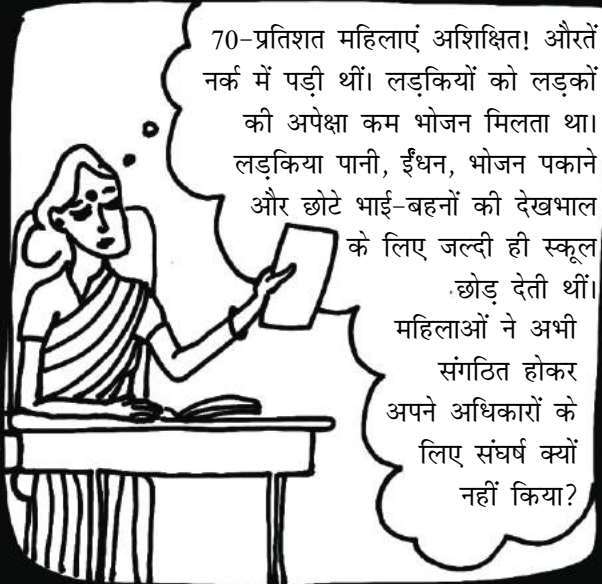 70-प्रतिशत महिलाएं अशिक्षित! औरतें
नर्क में पड़ी थीं। लड़कियों को लड़कों
की अपेक्षा कम भोजन मिलता था।
लड़किया पानी, ईंधन, भोजन पकाने
और छोटे भाई-बहनों की देखभाल
के लिए जल्दी ही स्कूल
छोड़ देती थीं।
महिलाओं ने अभी
संगठित होकर
अपने अधिकारों के
लिए संघर्ष क्यों
नहीं किया?